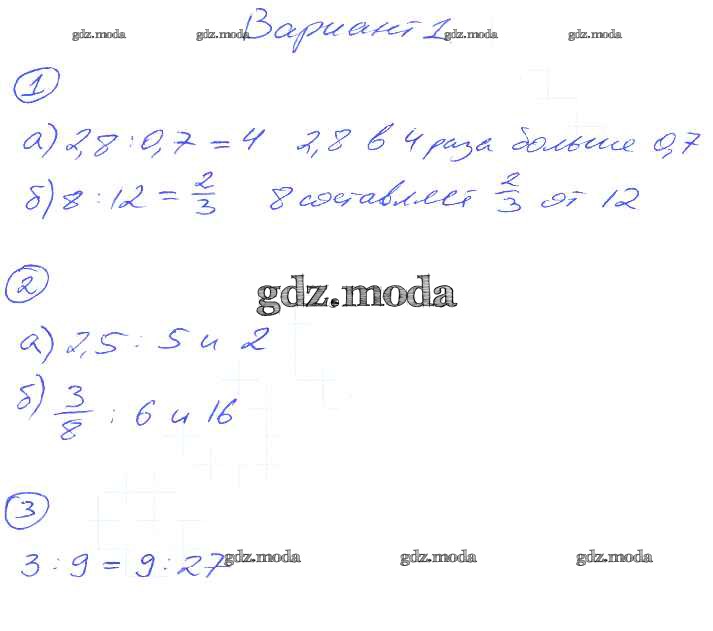 Вариант 1
gdz.moda gdz.moda gdz.moda gdz.moda
1
а) 2,8 : 0,7 = 4 2,8 в 4 раза больше 0,7
б) 8 : 12 = 2/3 8 составляет 2/3 от 12
2
gdz.moda
а) 2,5 : 5 и 2
б) 3/8 : 6 и 16
3
3 : 9 = 9 : 27
gdz.moda gdz.moda gdz.moda